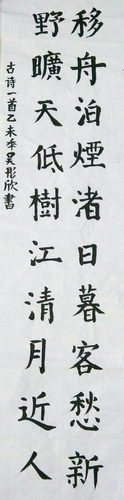 移舟泊煙渚日暮客愁新
野曠天低樹江清月近人
古诗一首乙未年吴彤欣書